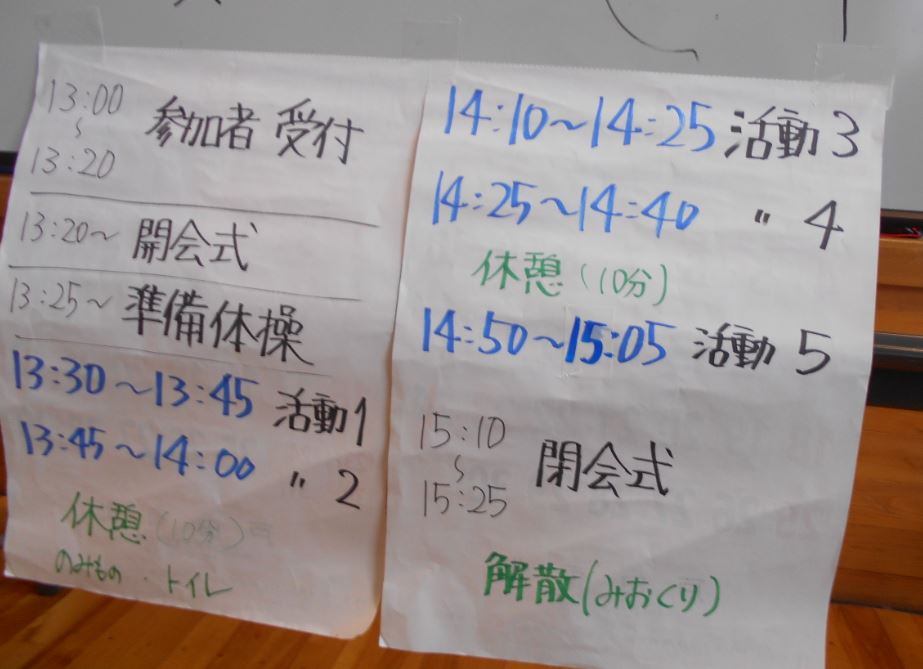 13:00
～
13:20
参加者 受付
13:20～ 開会式
13:25～ 準備体操
13:30～13:45 活動1
13:45～14:00 〃 2
休憩(10分)
のみもの・トイレ
14:10～14:25 活動3
14:25～14:40 〃 4
休憩(10分)
14:50～15:05 活動5
15:10
～
15:25
閉会式
解散(みおくり)